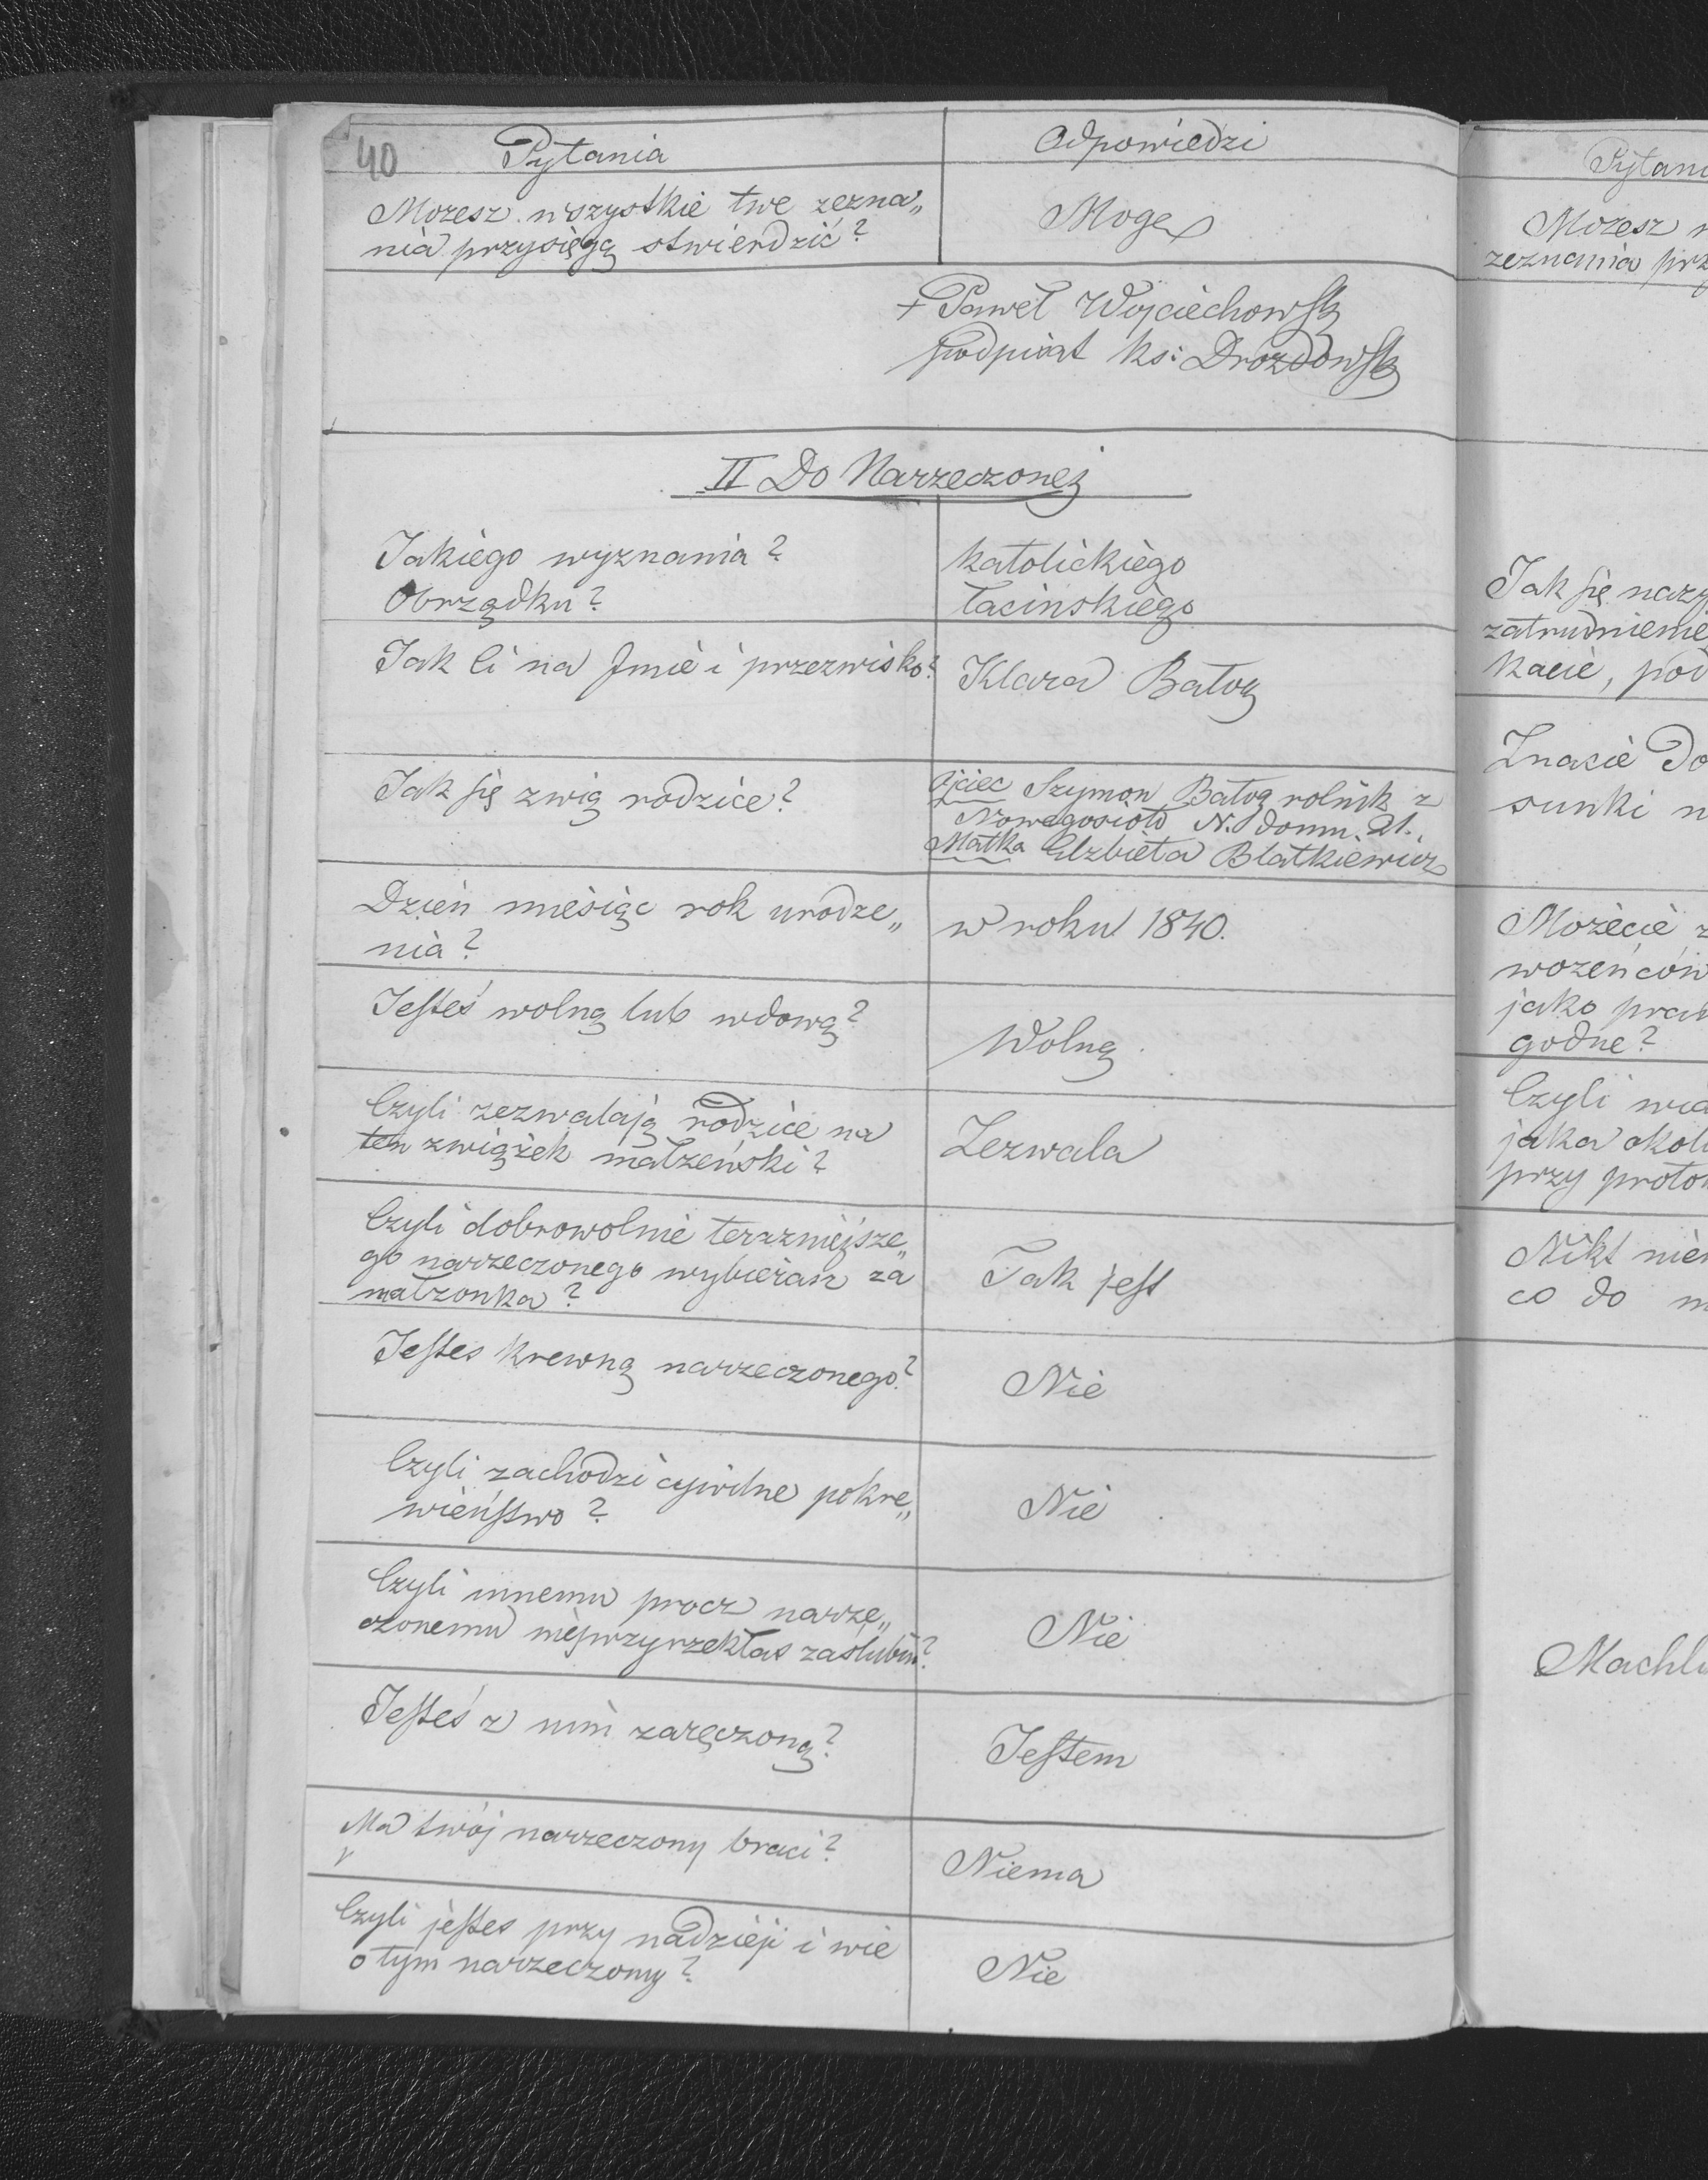 40 Pytania Odpowiedzi
Mozesz wszystkie twe zezna„
nia przysięgą stwierdzić? Moge
+ Paweł Wojciechowski
podpisał ks: Drozdowski
II Do Narzeczonej
Jakiego wyznania? katolickiego
Obrządku? łacinskiego
Jak li na Jmie i przezwisko? Klara Batog
Jak się zwią rodzice? Ojciec Szymon Batog rolnik z
Nowegosioło N. domu. 21.
Matka Elzbieta Blatkiewicz
Dzień miesiąc rok urodze„
nia? w roku 1840.
Jesteś wolną lub wdową? Wolną
Czyli zezwalają rodzice na
ten związek małzeński? Zezwala
Czyli dobrowolnie terazniejsze„
go narzeczonego wybierasz za
małzonka? Tak jest
Jestes krewną narzeczonego? Nie
Czyli zachodzi cywilne pokre„
wieństwo? Nie
Czyli innemu procz narze„
czonemu nieprzyrzekłas zaslubin? Nie
Jesteś z nim zaręczoną? Jestem
Ma twój narzeczony braci? Niema
Czyli jestes przy nadzieji i wie
o tym narzeczony? Nie
Pytani
Mozesz w
zeznania prz
Jak się nazy
zatrudnienie
kacie, pod
Znacie do
sunki n
Możecie z
wozeńców
jako praw
godne?
Czyli wia
jaka okoli
przy proto
Nikt nie
co do m
Machl